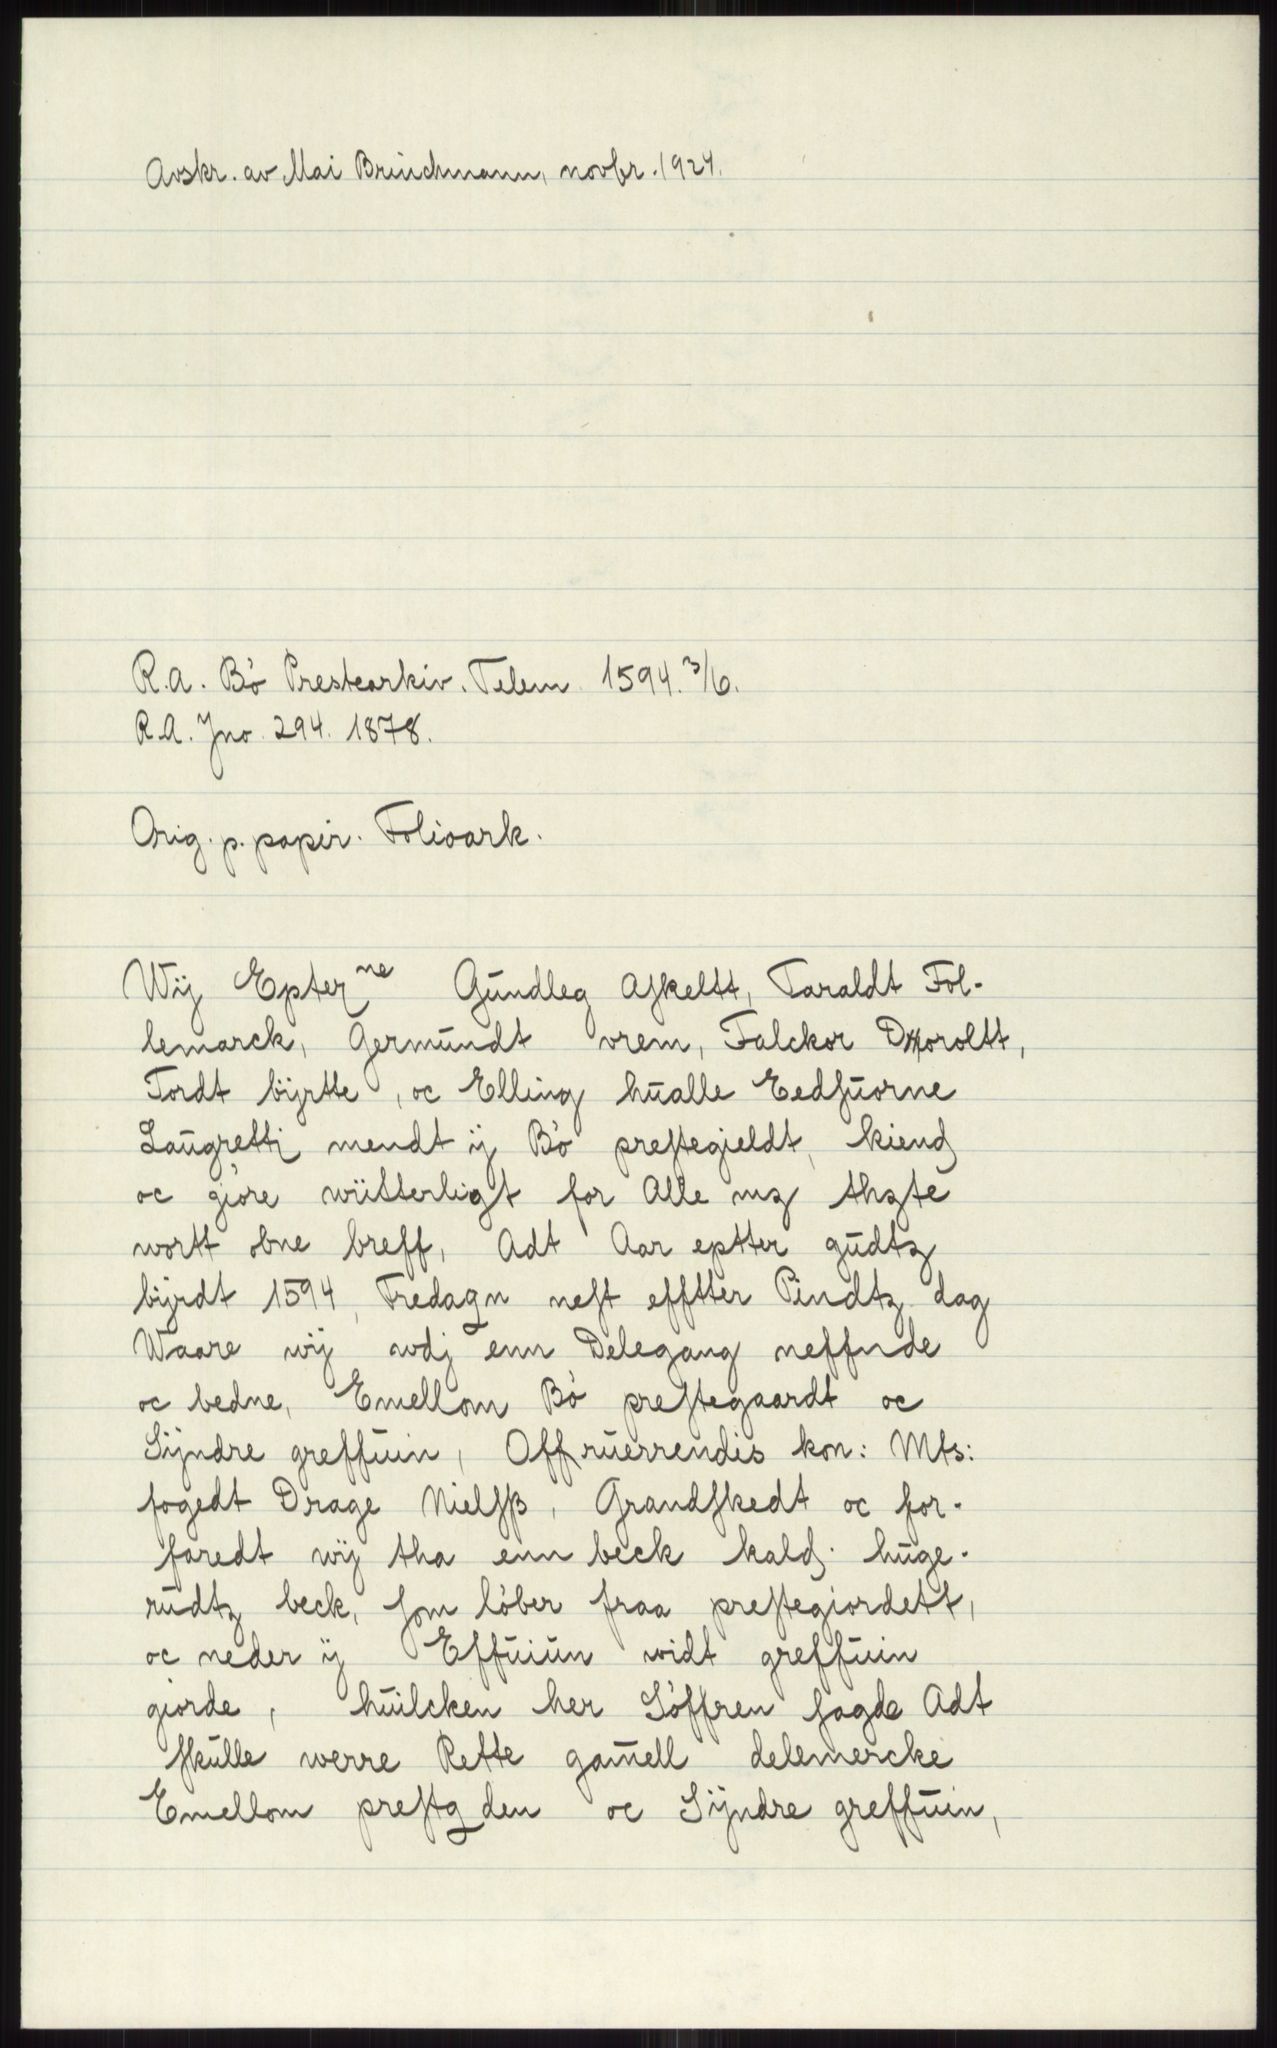 Avskr. av Mai Brinchmann, novbr. 1924.
R.A. Bö Prestearkiv. Telem. 1594. 3/6.
R.A. Jno. 294. 1878.
Orig. p. papir. Folioark.
Wij Epter ne Gundleg Aſkeltt, Taraldt Fol-
lemarck, Germundt vrem, Falckor Droroltt,
Tordt bÿrtte, oc Elling hualle Eedſuorne
Laugretti mendt ij Bö preſtegieldt, kiend
oc giöre wiitterligt for Alle mz thzte
wortt obne breff, Adt Aar eptter gudtz
bÿrdt 1594, Fredagn neſt efftter Pindtz dag
Waare wij wdj enn Delegang neffnde
oc bedne, Emellom Bö preſtegaardt oc
Sÿndre greffuin, Offruerrendis kon: Mts:
fogedt Drage Nielſß, Grandſkedt oc for-
faredt wij tha enn beck kald. huge-
rudtz beck, ſom löber fraa preſtegiordett,
oc neder ij Effuiun widt greffuin
giorde, huilcken her Söffren ſagde Adt
ſkulle werre Rette gamell delemercke
Emellom preſtg den oc Sÿndre greffuin,